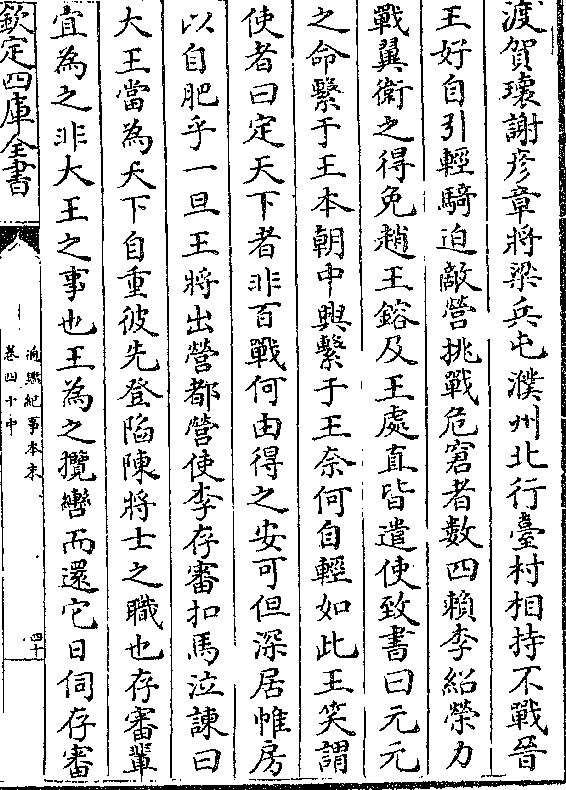 渡賀瓌謝彦章將梁兵屯濮州北行臺村相持不戰晉
王好自引輕騎迫敵營挑戰危窘者數四賴李紹榮力
戰翼衛之得免趙王鎔及王處直皆遣使致書曰元元
之命繫于王本朝中興繫于王奈何自輕如此王笑謂
使者曰定天下者非百戰何由得之安可但深居帷房
以自肥乎一旦王將出營都營使李存審扣馬泣諫曰
大王當為天下自重彼先登陷陳將士之職也存審輩
宜為之非大王之事也王為之攬轡而還它日伺存審
欽定四庫全書
通鑑紀事本末
卷四十中
四十